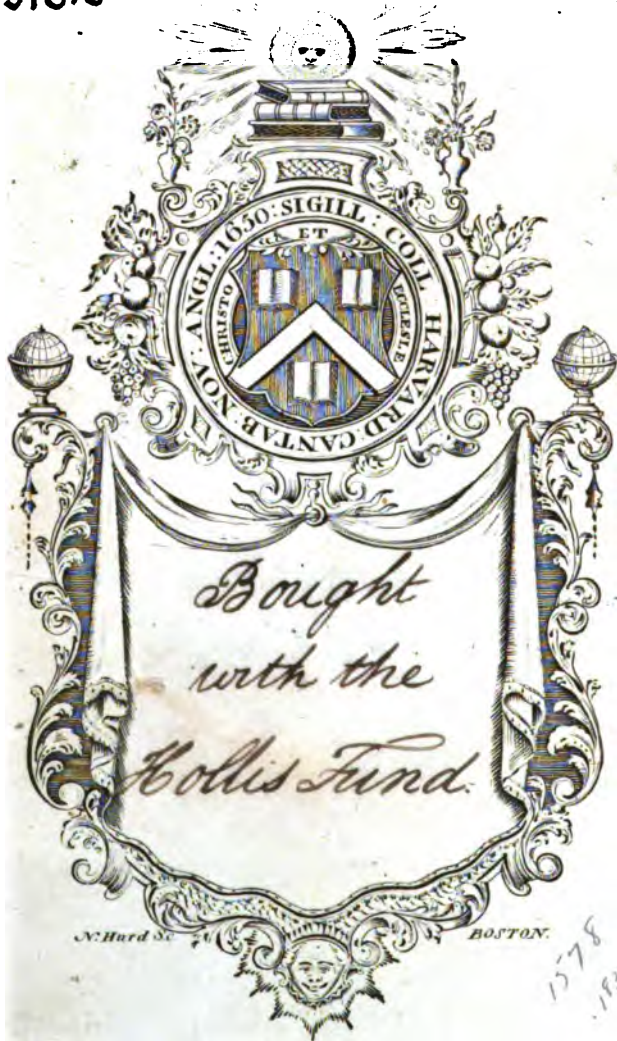 SIGILL : COLL HARVARD·CANTAB: NOV: ANGL: 1650:
ET
CHRISTO
ECCLESIÆ
Bought
with the
Hollis Fund.
N: Hurd Sc
BOSTON.
1578